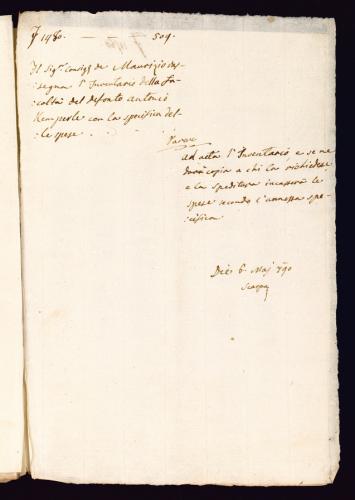 1480. — — — 509.
Il Sig.r Consig.r de Maurizio ras-
segna l'Inventario della Fa-
coltà del defonto Antonio
Kemperle con la specifica del-
le spese . . .
Parere
ad acta l'Inventario, e se ne
darà copia a chi la richiedesse
e la speditura incasserà le
spese secondo l'annessa spe-
cifica.
Die 6. Maj 790